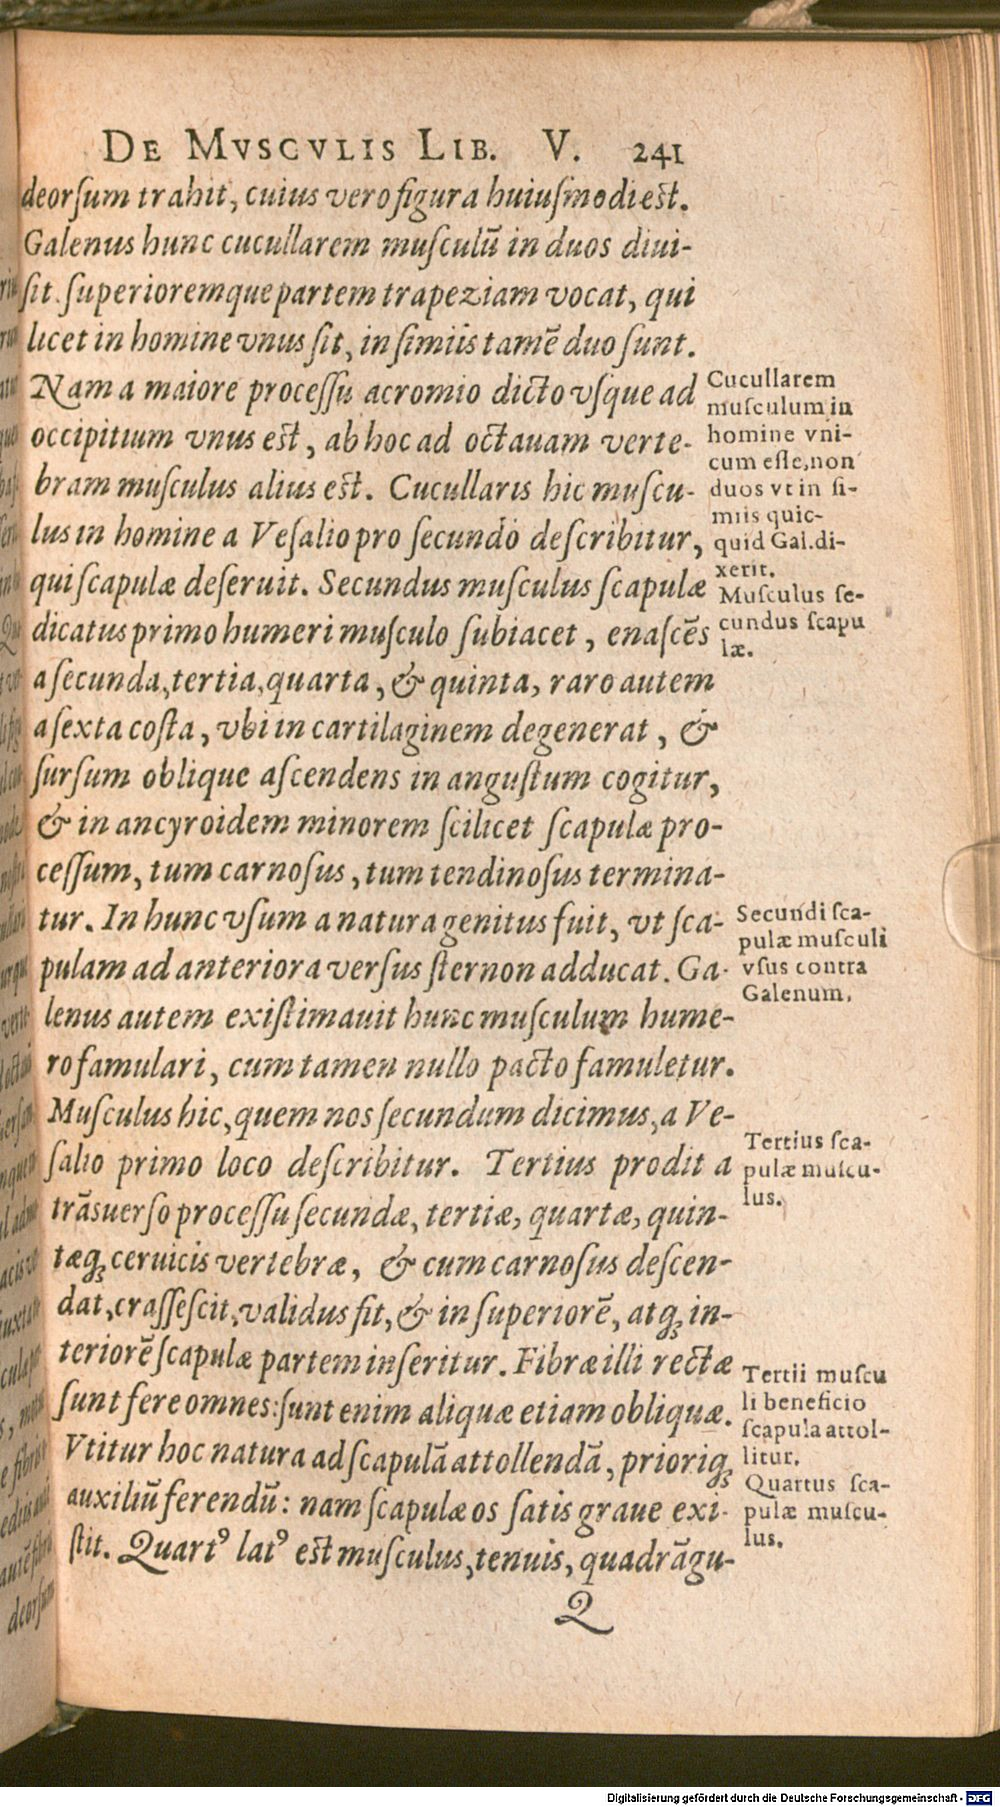 DE MVSCVLIS LIB. V. 241
deorſum trahit, cuius vero figura huiuſmodi est.
Galenus hunc cucullarem muſculū in duos diui-
ſit. ſuperioremque partem trapeziam vocat, qui
licet in homine vnus ſit, in ſimiis tamē duo ſunt.
Nam a maiore proceſſu acromio dicto vſque ad
occipitium vnus est, ab hoc ad octauam verte-
bram muſculus alius est. Cucullaris hic muſcu-
lus in homine a Veſalio pro ſecundo deſcribitur,
qui ſcapulæ deſeruit. Secundus muſculus ſcapulæ
dicatus primo humeri muſculo ſubiacet, enaſcēs
a ſecunda, tertia, quarta, & quinta, raro autem
a ſexta coſta, vbi in cartilaginem degenerat, &
ſurſum oblique aſcendens in anguſtum cogitur,
& in ancyroidem minorem ſcilicet ſcapulæ pro-
ceſſum, tum carnoſus, tum tendinoſus termina-
tur. In hunc vſum a natura genitus fuit, vt ſca-
pulam ad anteriora verſus ſternon adducat. Ga-
lenus autem exiſtimauit hunc muſculum hume-
ro famulari, cum tamen nullo pacto famuletur.
Muſculus hic, quem nos ſecundum dicimus, a Ve-
ſalio primo loco deſcribitur. Tertius prodit a
trāsuerſo proceſſu ſecundæ, tertiæ, quartæ, quin-
tæq; ceruicis vertebræ, & cum carnoſus deſcen-
dat, craſſeſcit, validus fit, & in ſuperiorē, atq; in-
teriorē ſcapulæ partem inſeritur. Fibræ illi rectæ
ſunt fere omnes: ſunt enim aliquæ etiam obliquæ.
Vtitur hoc natura ad ſcapulā attollendā, prioriq;
auxiliū ferendū: nam ſcapulæ os ſatis graue exi-
ſtit. Quartꝰ latꝰ est muſculus, tenuis, quadrāgu-
Q
Cucullarem
muſculum in
homine vni-
cum eſſe, non
duos vt in ſi-
miis quic-
quid Gal. di-
xerit.
Muſculus ſe-
cundus ſcapu
læ.
Secundi ſca-
pulæ muſculi
vſus contra
Galenum.
Tertius ſca-
pulæ muſcu-
lus.
Tertii muſcu
li beneficio
ſcapula attol-
litur.
Quartus ſca-
pulæ muſcu-
lus.
Digitalisierung gefördert durch die Deutsche Forschungsgemeinschaft - DFG